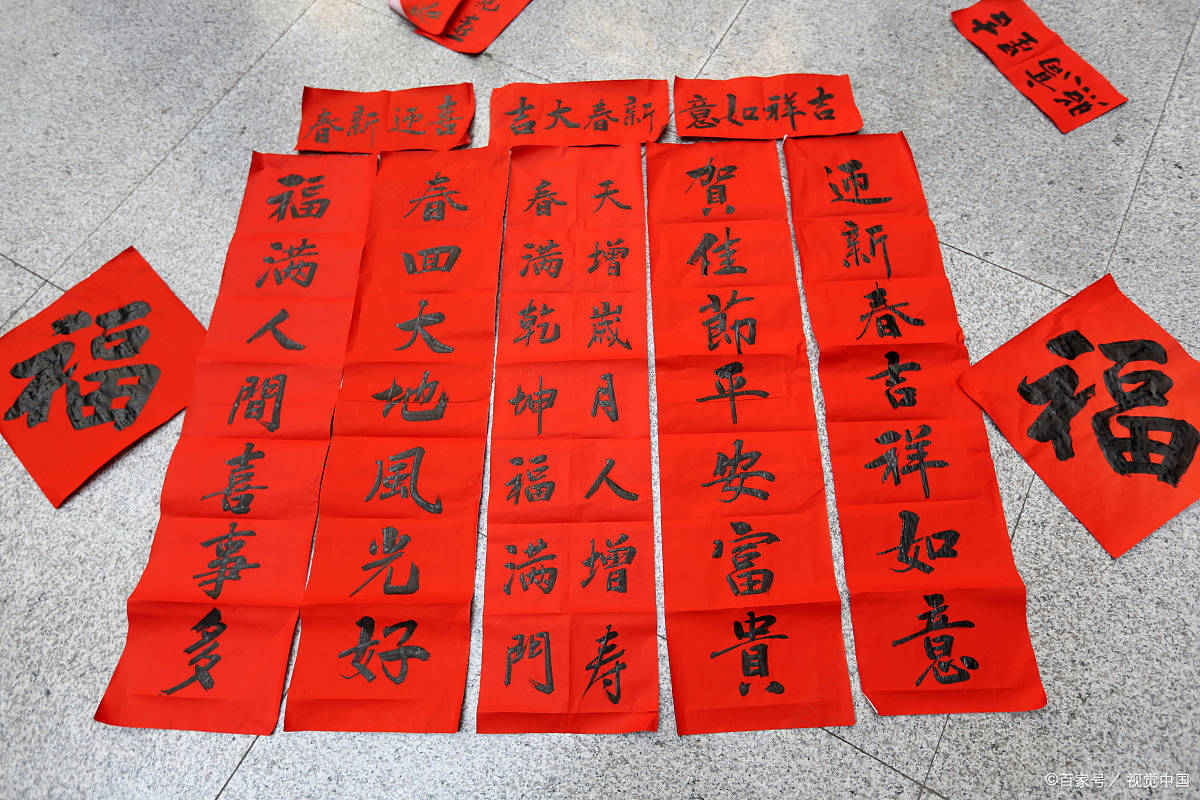 吉祥如意
新春大吉
喜迎新春
迎新春吉祥如意
賀佳節平安富貴
天增歲月人增寿
春满乾坤福满門
春回大地風光好
福满人間喜事多
福
福
©百家号／视觉中国